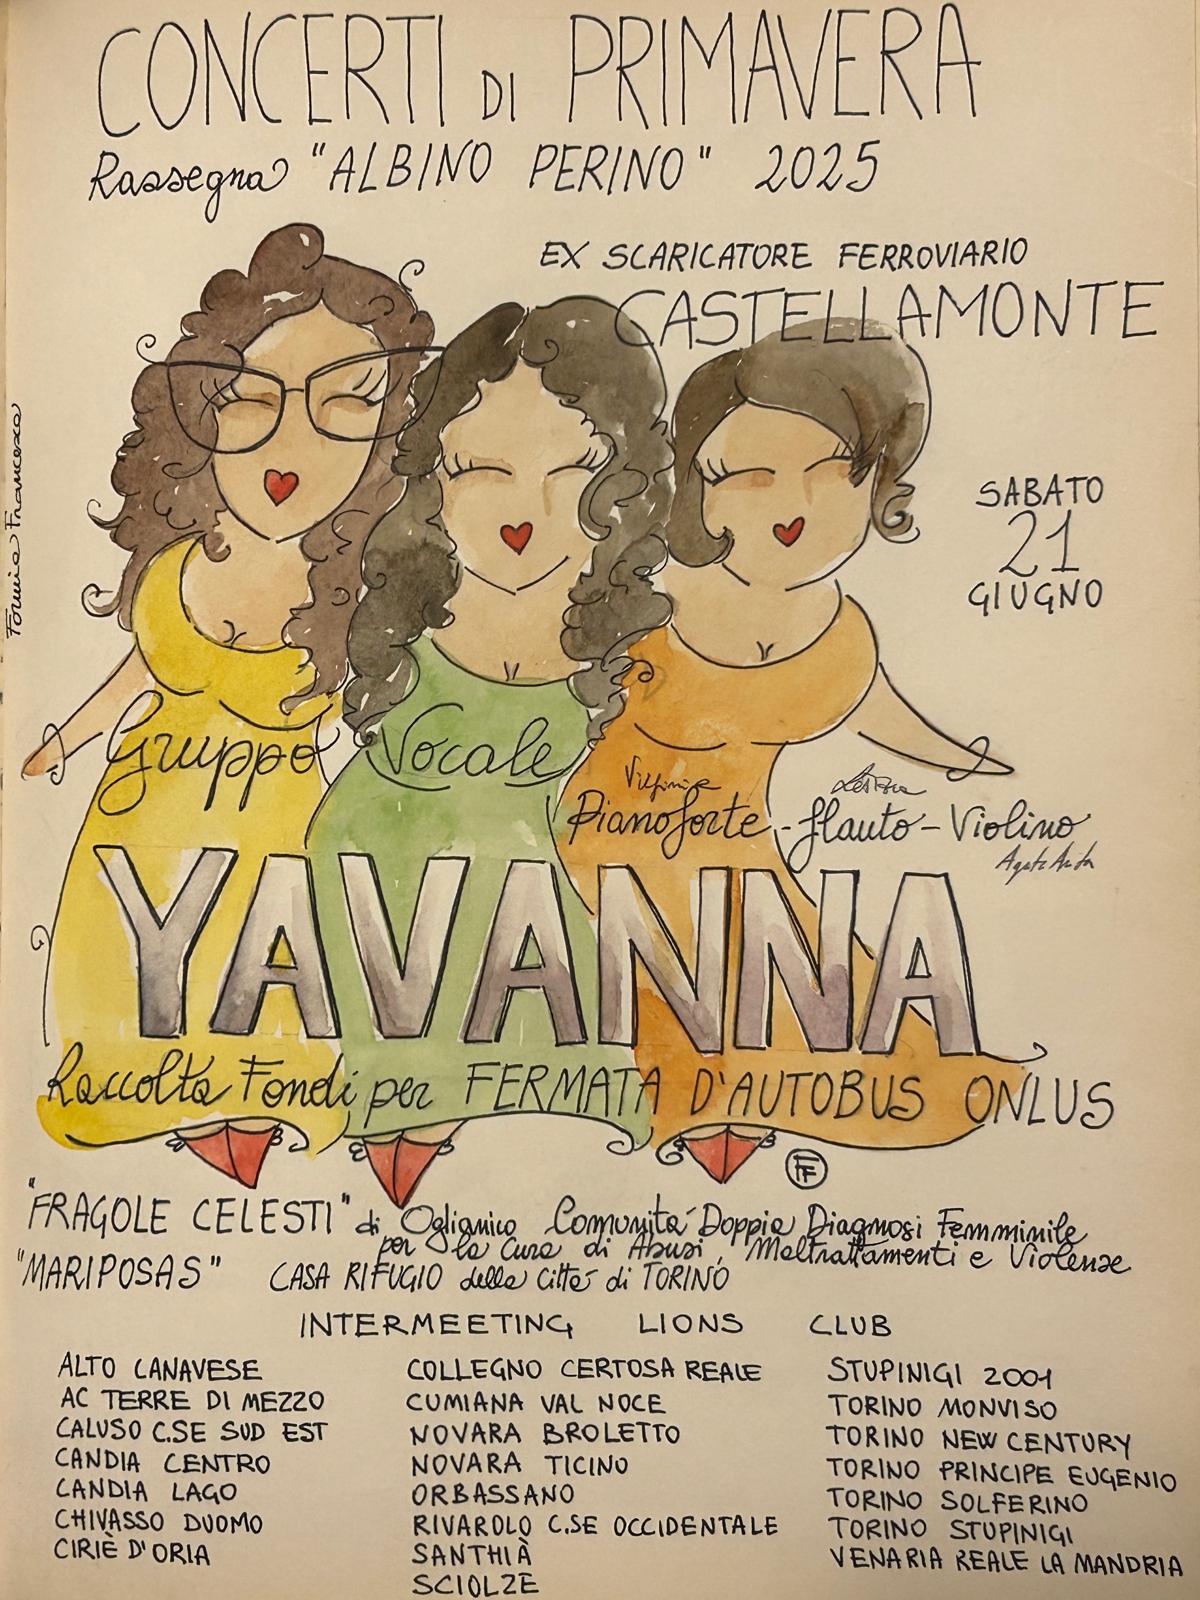 CONCERTI DI PRIMAVERA
Rassegna "ALBINO PERINO" 2025
EX SCARICATORE FERROVIARIO
CASTELLAMONTE
SABATO
21
GIUGNO
Gruppo Vocale
Pianoforte - flauto - Violino
YAVANNA
Raccolta Fondi per FERMATA D'AUTOBUS ONLUS
FF
"FRAGOLE CELESTI" di Oglianico Comunità Doppia Diagnosi Femminile
per la Cura di Abusi, Maltrattamenti e Violenze
"MARIPOSAS" CASA RIFUGIO della Città di TORINO
INTERMEETING LIONS CLUB
ALTO CANAVESE
AC TERRE DI MEZZO
CALUSO C.SE SUD EST
CANDIA CENTRO
CANDIA LAGO
CHIVASSO DUOMO
CIRIÈ D'ORIA
COLLEGNO CERTOSA REALE
CUMIANA VAL NOCE
NOVARA BROLETTO
NOVARA TICINO
ORBASSANO
RIVAROLO C.SE OCCIDENTALE
SANTHIÀ
SCIOLZE
STUPINIGI 2001
TORINO MONVISO
TORINO NEW CENTURY
TORINO PRINCIPE EUGENIO
TORINO SOLFERINO
TORINO STUPINIGI
VENARIA REALE LA MANDRIA